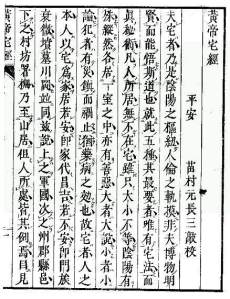 黃帝宅經
平安　苗村元長三敵校
夫宅者乃是陰陽之樞紐人倫之軌模非夫博物明
賢而能悟斯道也就此五種其最要者唯有宅法而
真秘術凡人所居無不在宅雖只大小不等陰陽有
殊縱然客居一室之中亦有善惡大者大說小者小
論犯者有災鎮而禍止猶藥病之効也故宅者人之
本人以宅為家居若安即家代昌吉若不安即門族
衰微墳墓川岡並同茲說上之軍國次之州郡縣邑
下之村坊署柵乃至山居但人所處皆其例焉目見
黃帝宅經